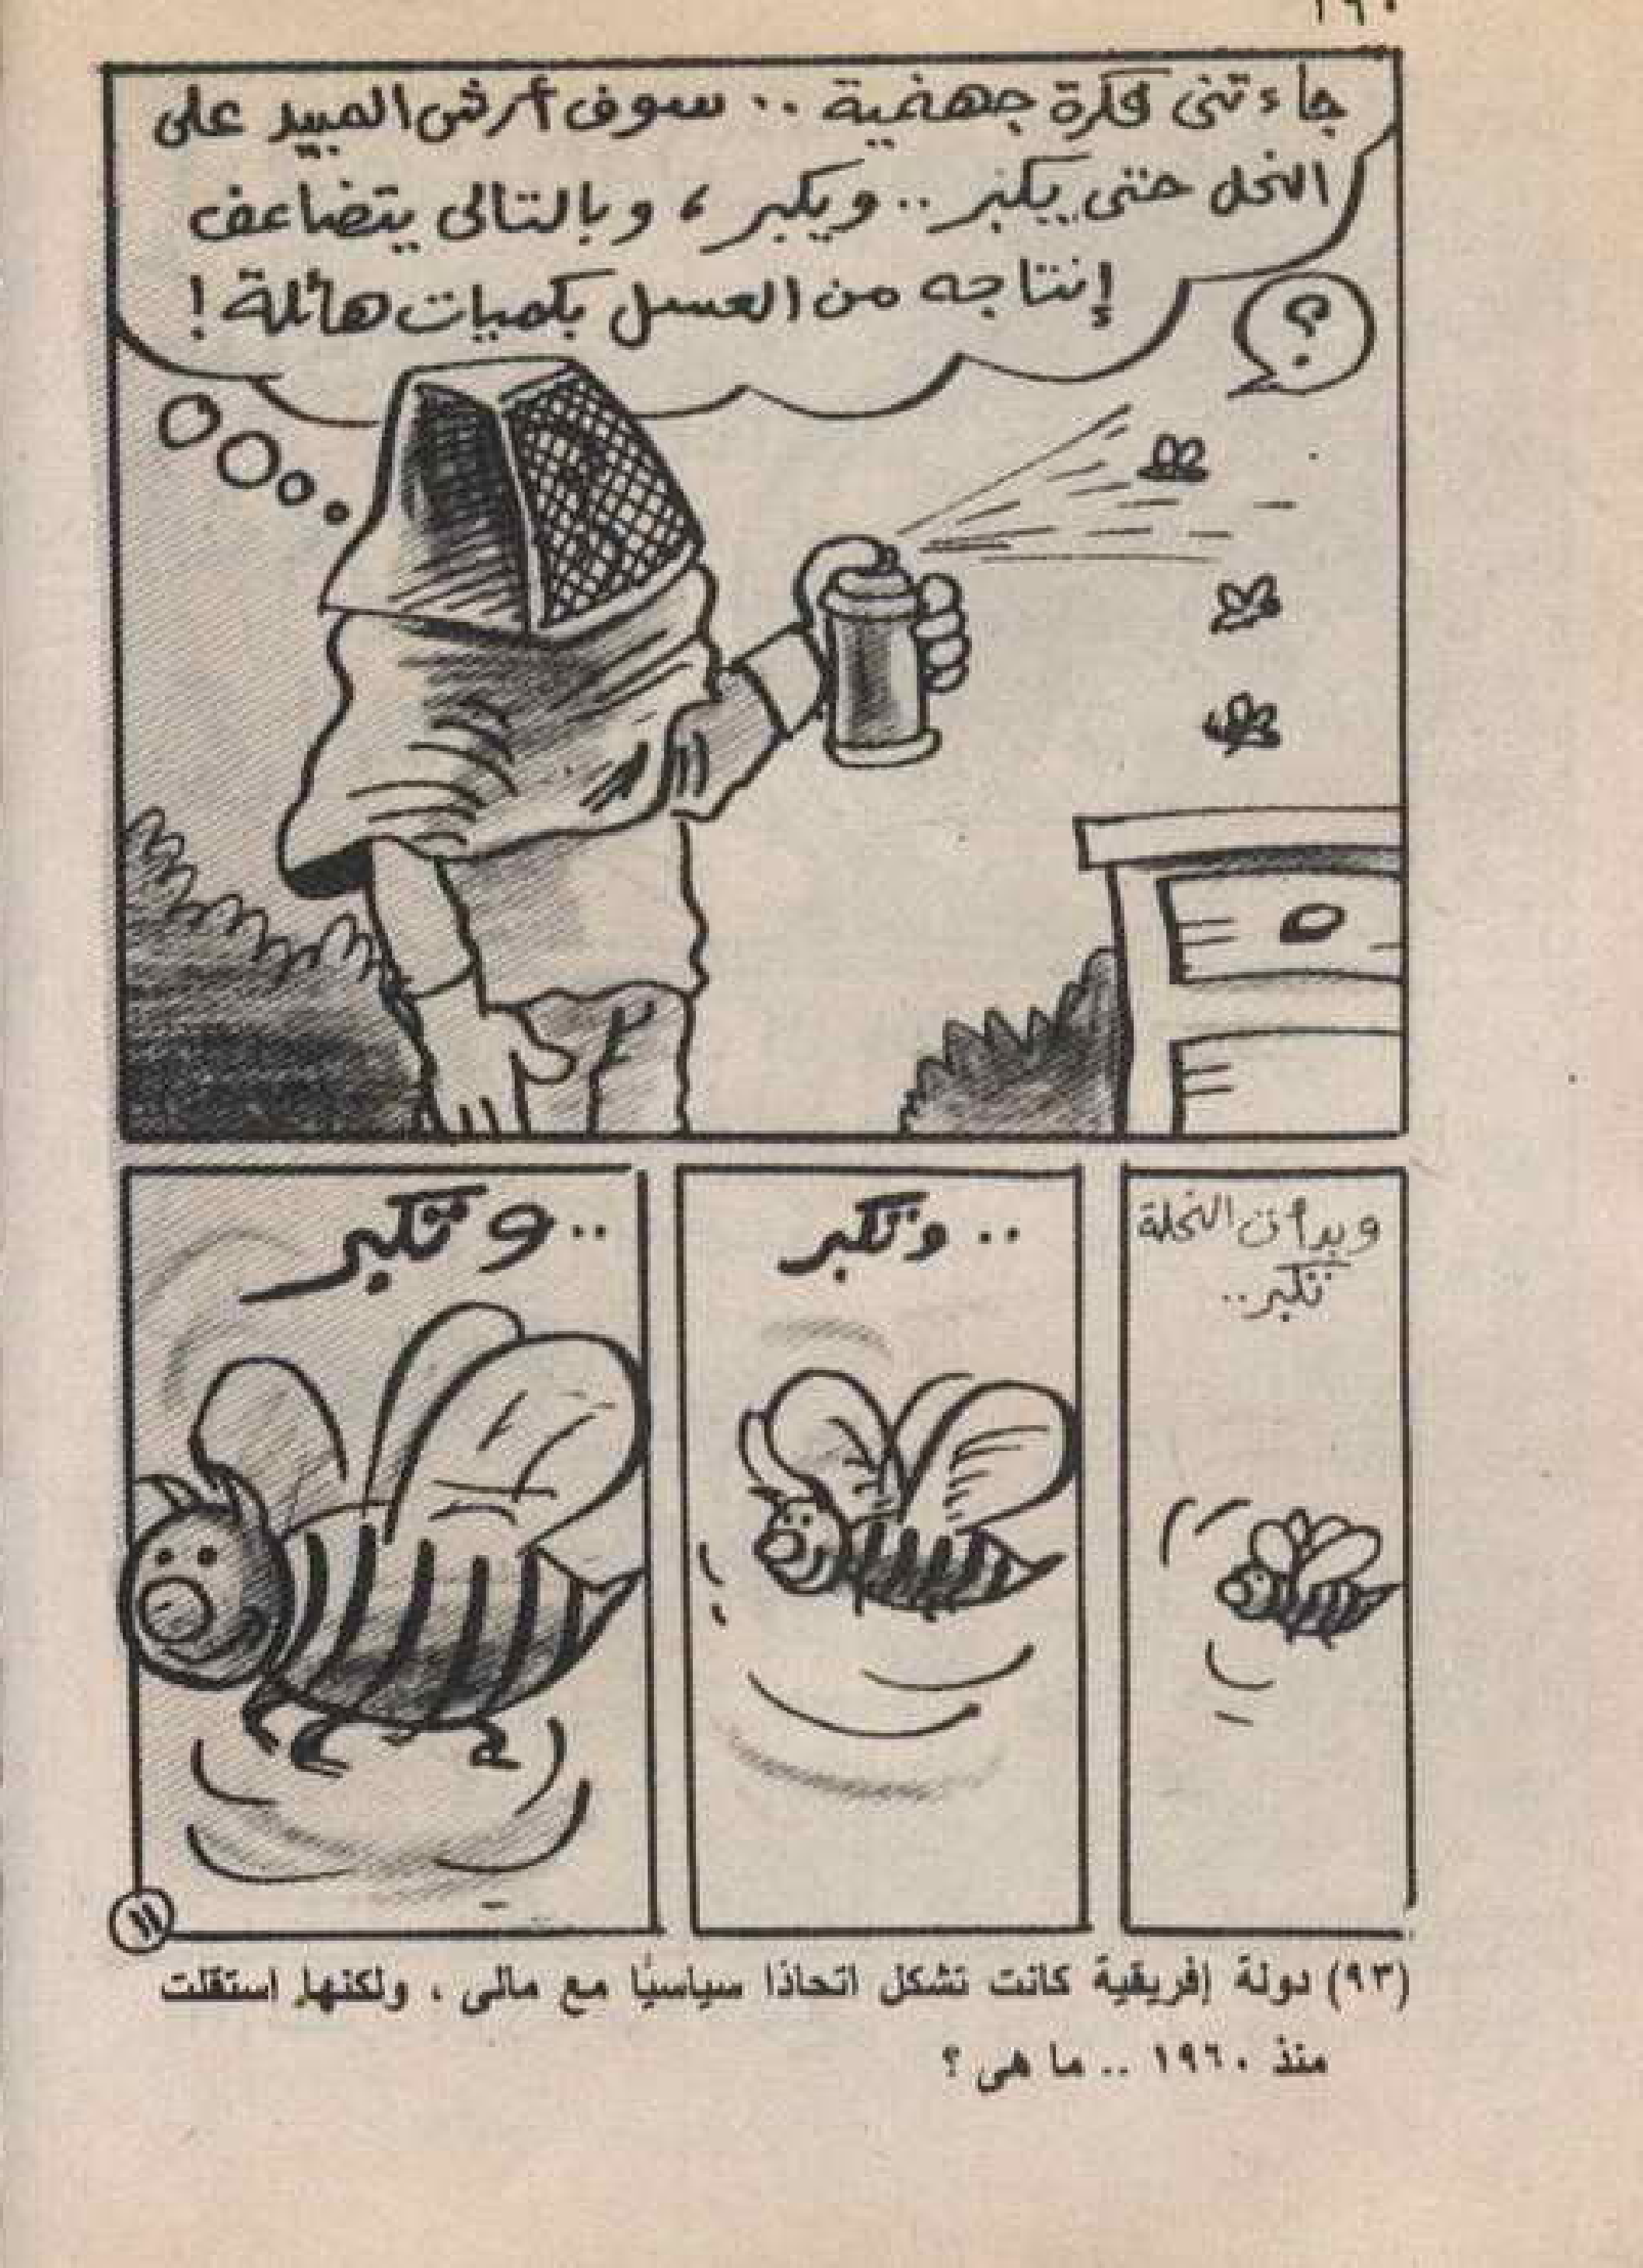 ١٦٠
جاءتنى فكرة جهنمية .. سوف أرش المبيد على
النحل حتى يكبر .. ويكبر ، وبالتالى يتضاعف
إنتاجه من العسل بكميات هائلة !
؟
وبدأت النحلة
تكبر ..
.. وتكبر
.. وتكبر
١١
(٩٣) دولة إفريقية كانت تشكل اتحاذا سياسيًا مع مالى ، ولكنها استقلت
منذ ١٩٦٠ .. ما هى ؟